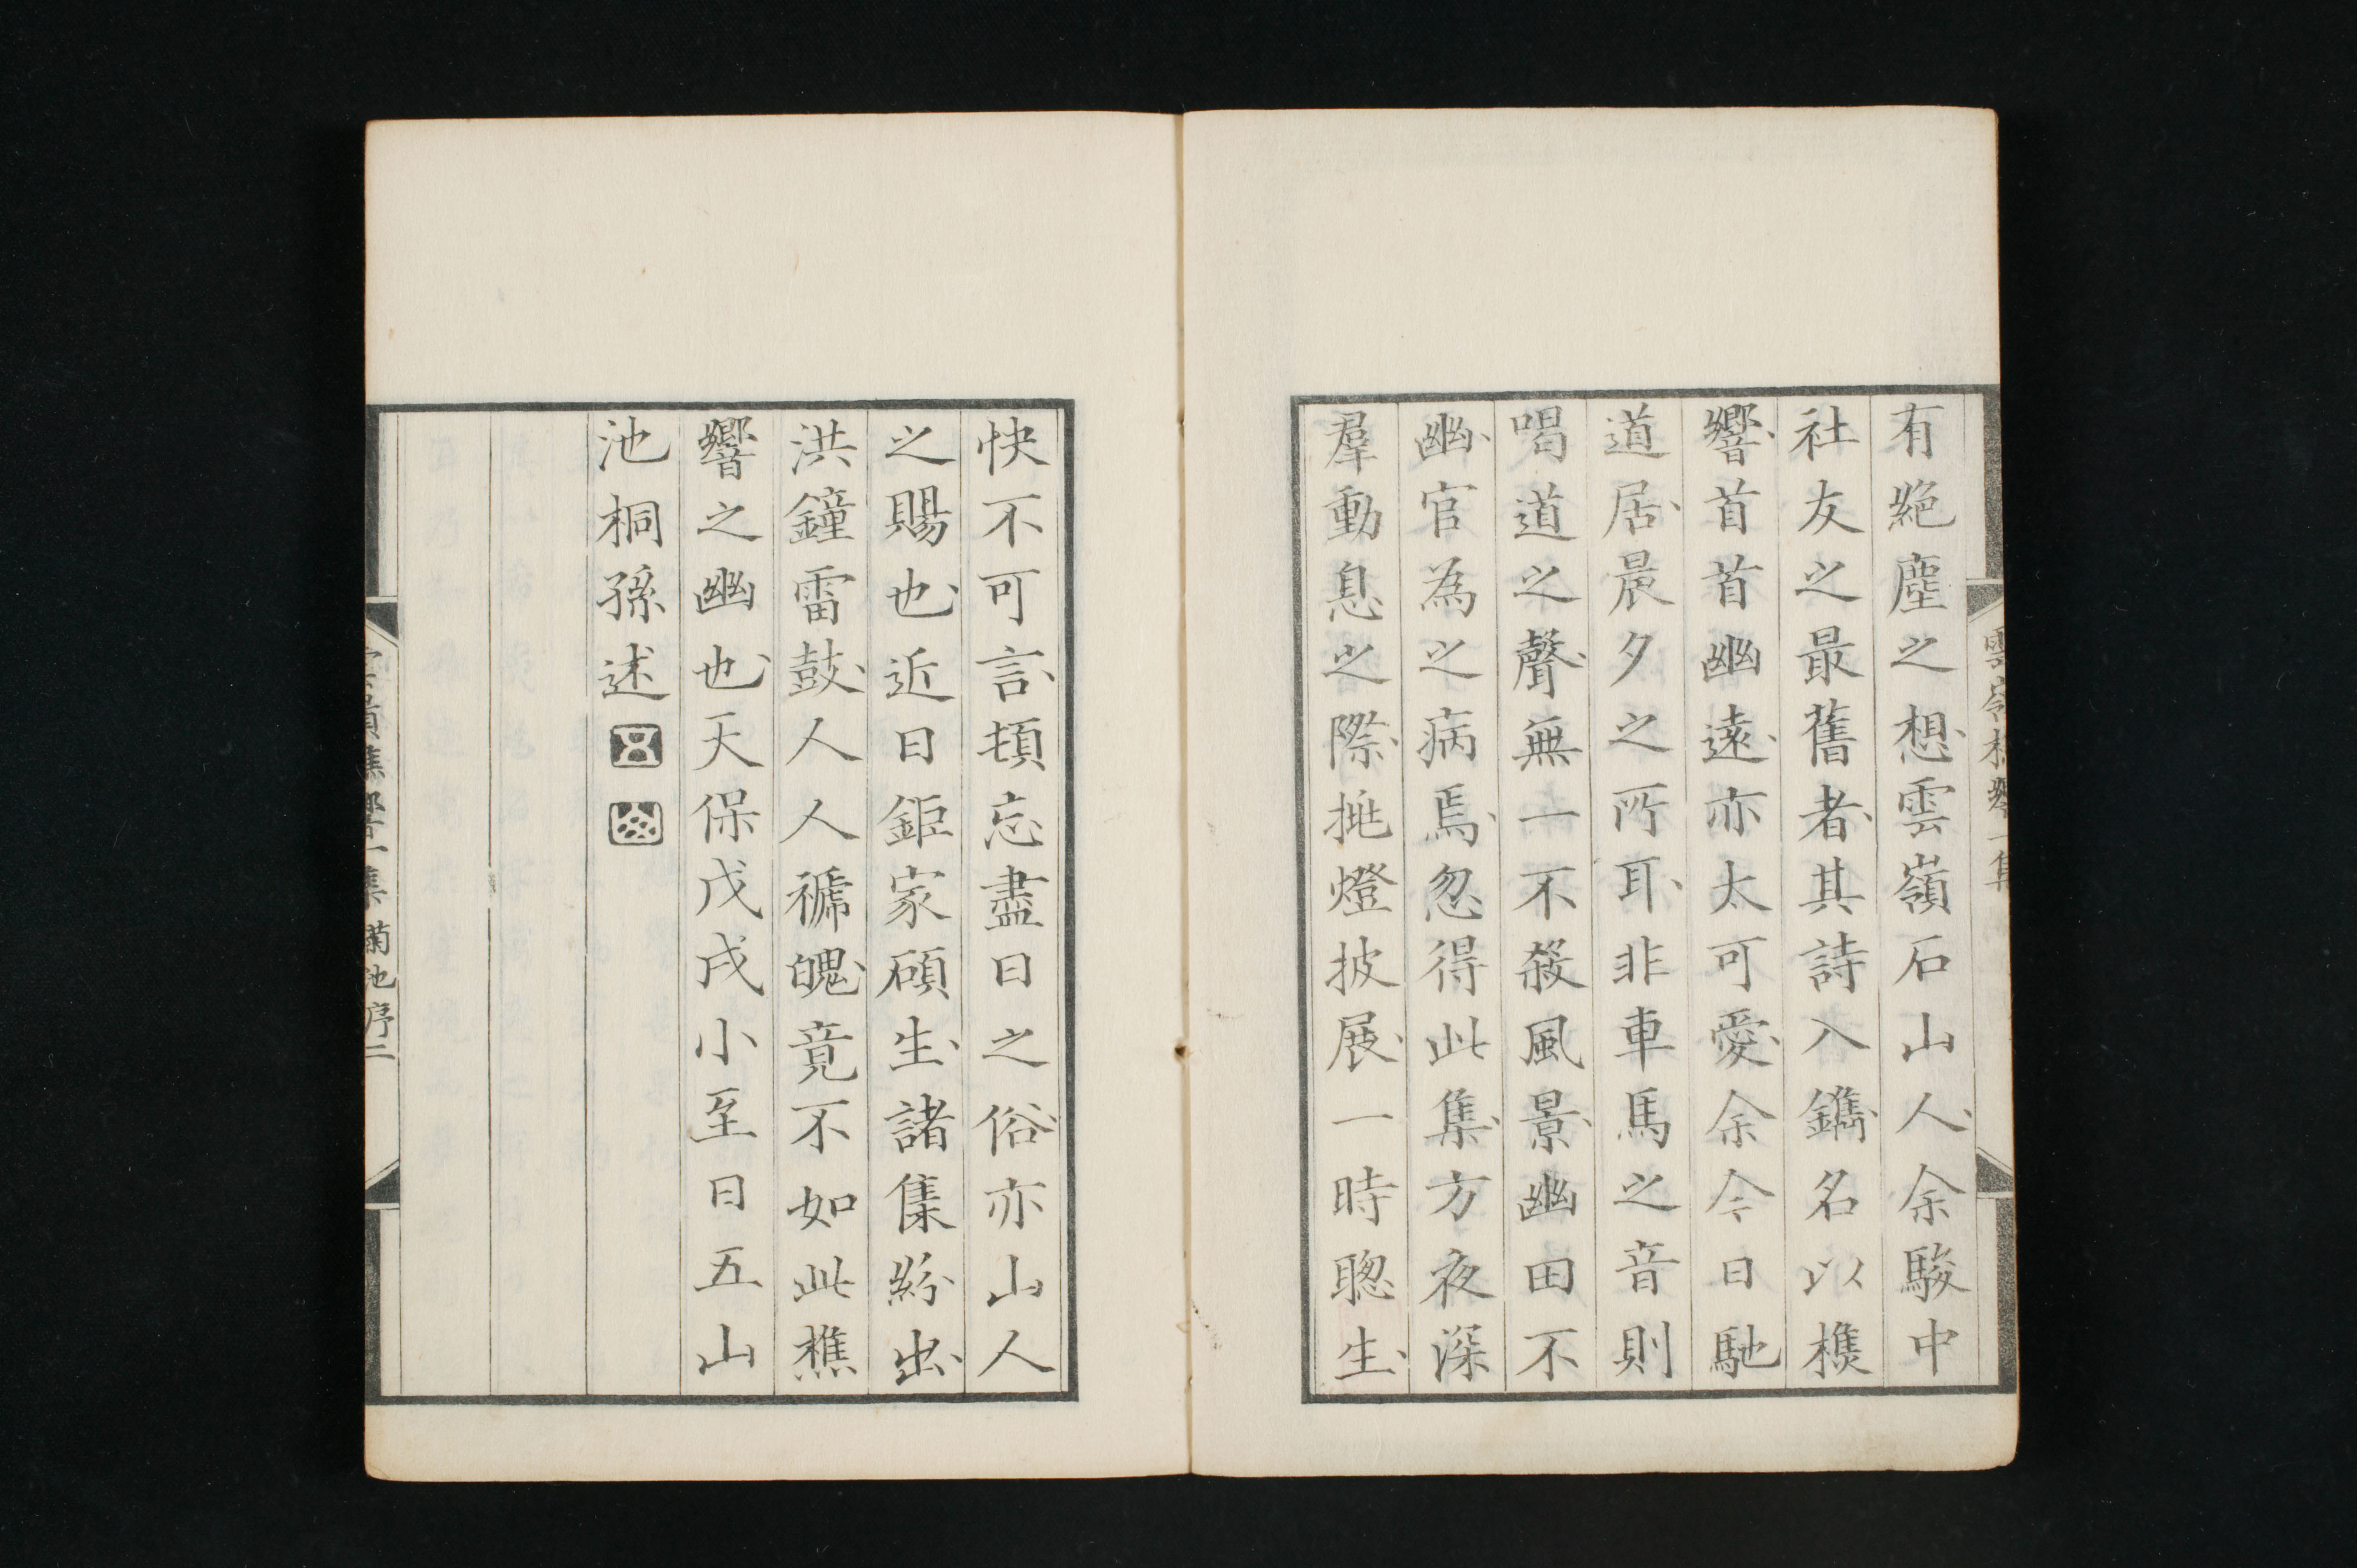 有絕塵之想、雲嶺石山人、余駿中
社友之最舊者、其詩入鐫、名以樵
響、首首幽遠、亦太可愛、余今日馳
道居、晨夕之所耳、非車馬之音則
喝道之聲、無一不殺風景、幽田不
幽、官為之病焉、忽得此集、方夜深
羣動息之際、挑燈披展、一時聰生、
快不可言、頓忘盡日之俗、亦山人
之賜也、近日鉅家碩生、諸集紛出、
洪鐘雷鼓、人人褫魄、竟不如此樵
響之幽也、天保戊戌小至日五山
池桐孫述
雲嶺樵響一集
菊池序二